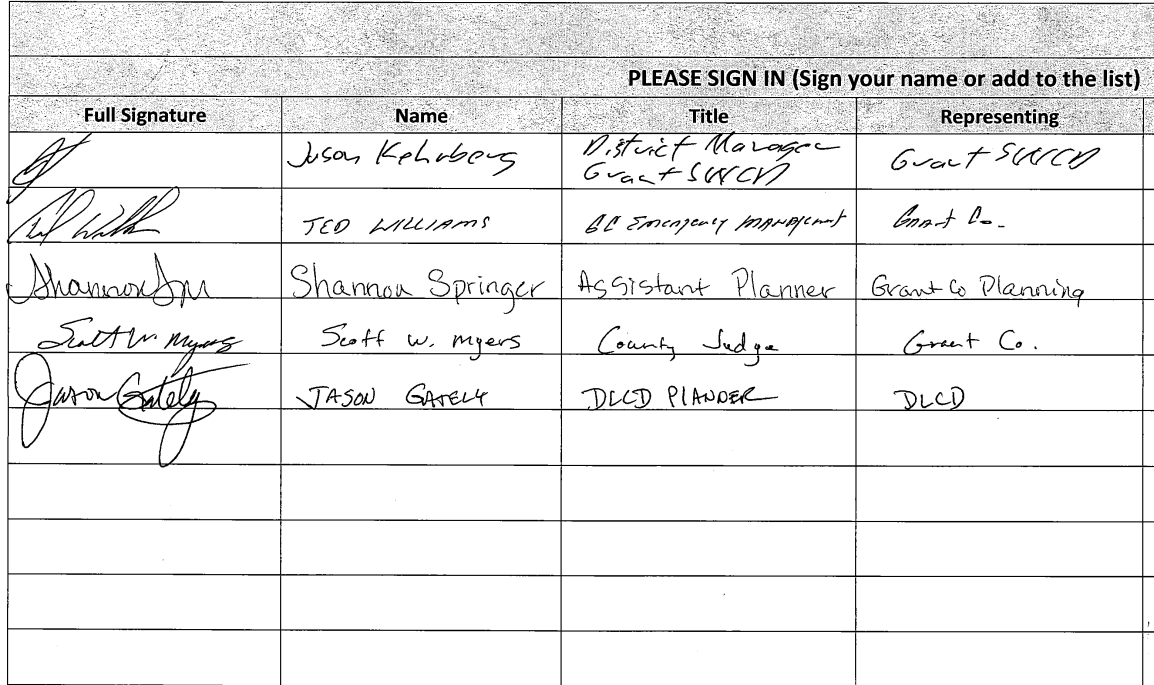 PLEASE SIGN IN (Sign your name or add to the list)
Full Signature Name Title Representing
Jason Kehrberg District Manager Grant SWCD
Grant SWCD
Ted Will TED WILLIAMS GC Emergency MANAgement Grant Co.
Shannon Spr Shannon Springer Assistant Planner Grant Co Planning
Scott W. Myers Scott W. Myers County Judge Grant Co.
Jason Gately JASON GATELY DLCD PlANNER DLCD